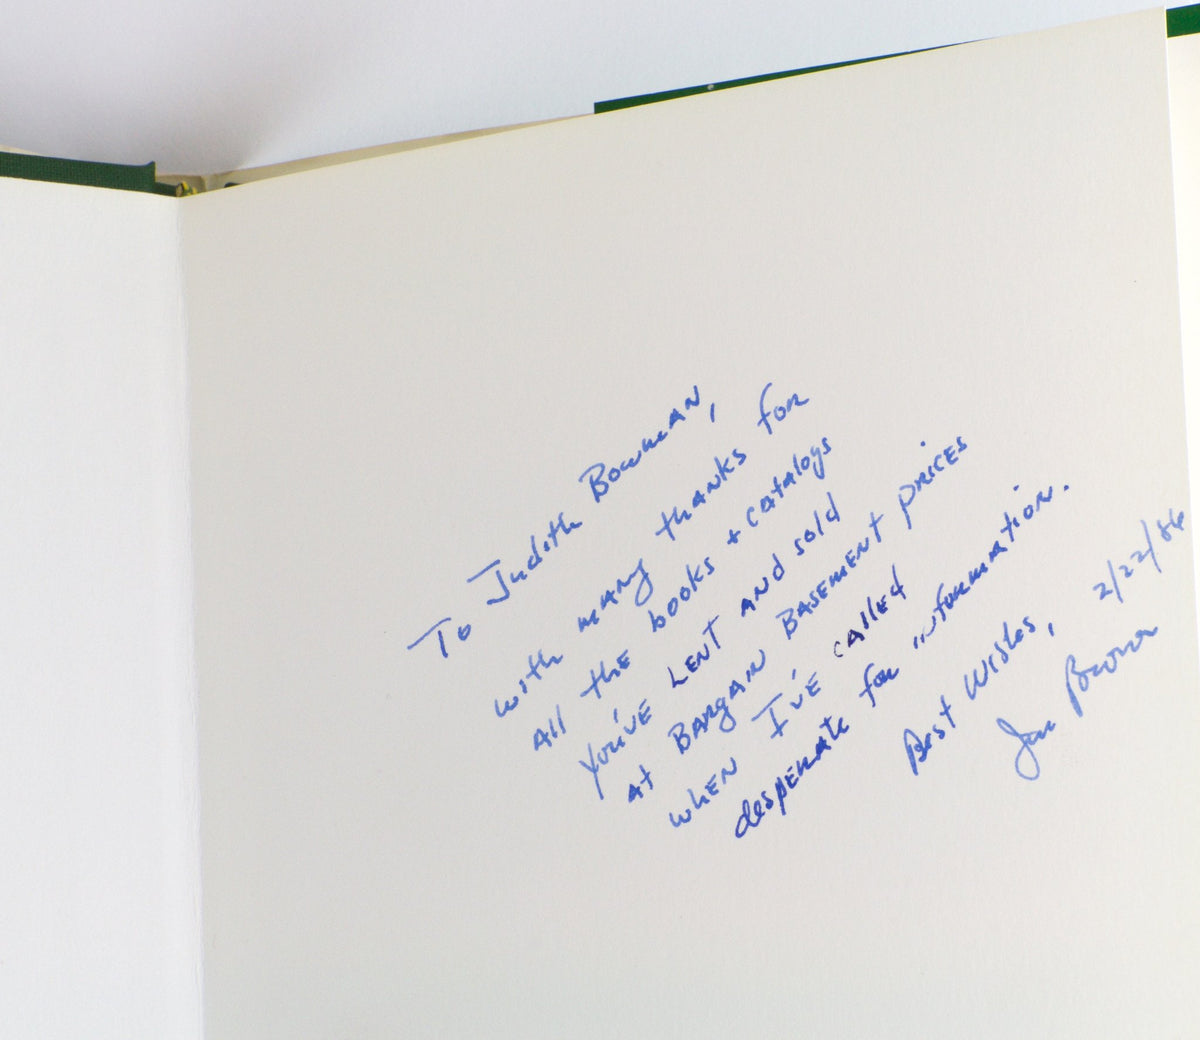 To Judith Bowman,
with many thanks for
all the books + catalogs
you've lent and sold
at Bargain Basement prices
when I've called
desperate for information.
Best Wishes,
Brown
2/22/86